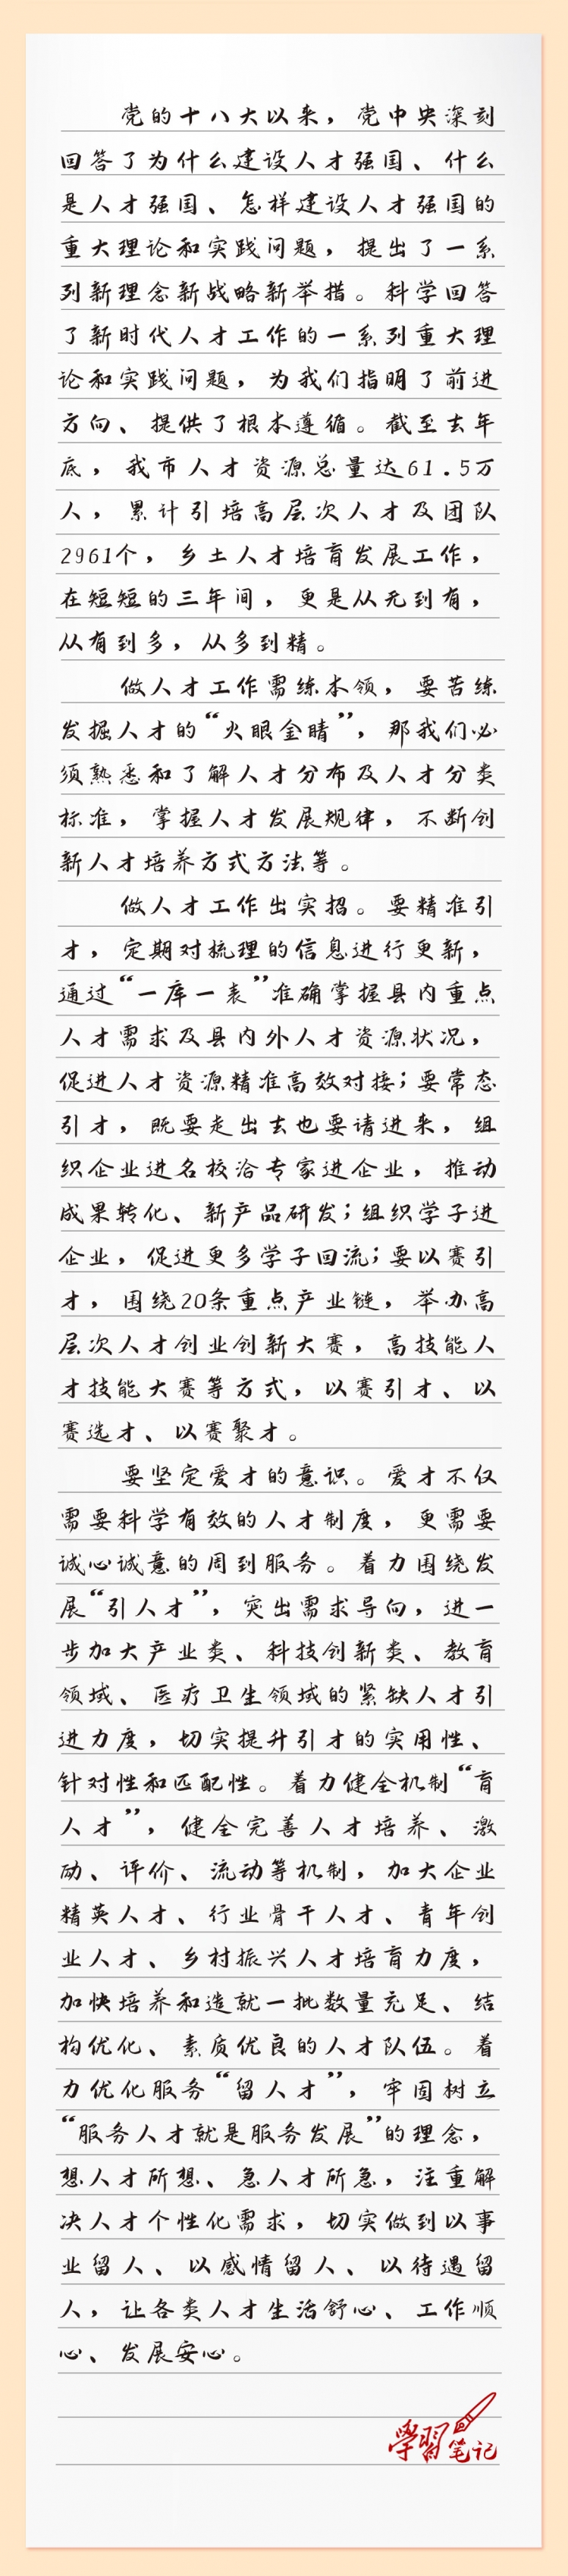 党的十八大以来，党中央深刻
回答了为什么建设人才强国、什么
是人才强国、怎样建设人才强国的
重大理论和实践问题，提出了一系
列新理念新战略新举措。科学回答
了新时代人才工作的一系列重大理
论和实践问题，为我们指明了前进
方向、提供了根本遵循。截至去年
底，我市人才资源总量达61.5万
人，累计引培高层次人才及团队
2961个，乡土人才培育发展工作，
在短短的三年间，更是从无到有，
从有到多，从多到精。
做人才工作需练本领，要苦练
发掘人才的“火眼金睛”，那我们必
须熟悉和了解人才分布及人才分类
标准，掌握人才发展规律，不断创
新人才培养方式方法等。
做人才工作出实招。要精准引
才，定期对梳理的信息进行更新，
通过“一库一表”准确掌握县内重点
人才需求及县内外人才资源状况，
促进人才资源精准高效对接；要常态
引才，既要走出去也要请进来，组
织企业进名校洽专家进企业，推动
成果转化、新产品研发；组织学子进
企业，促进更多学子回流；要以赛引
才，围绕20条重点产业链，举办高
层次人才创业创新大赛，高技能人
才技能大赛等方式，以赛引才、以
赛选才、以赛聚才。
要坚定爱才的意识。爱才不仅
需要科学有效的人才制度，更需要
诚心诚意的周到服务。着力围绕发
展“引人才”，突出需求导向，进一
步加大产业类、科技创新类、教育
领域、医疗卫生领域的紧缺人才引
进力度，切实提升引才的实用性、
针对性和匹配性。着力健全机制“育
人才”，健全完善人才培养、激
励、评价、流动等机制，加大企业
精英人才、行业骨干人才、青年创
业人才、乡村振兴人才培育力度，
加快培养和造就一批数量充足、结
构优化、素质优良的人才队伍。着
力优化服务“留人才”，牢固树立
“服务人才就是服务发展”的理念，
想人才所想、急人才所急，注重解
决人才个性化需求，切实做到以事
业留人、以感情留人、以待遇留
人，让各类人才生活舒心、工作顺
心、发展安心。
學習笔记